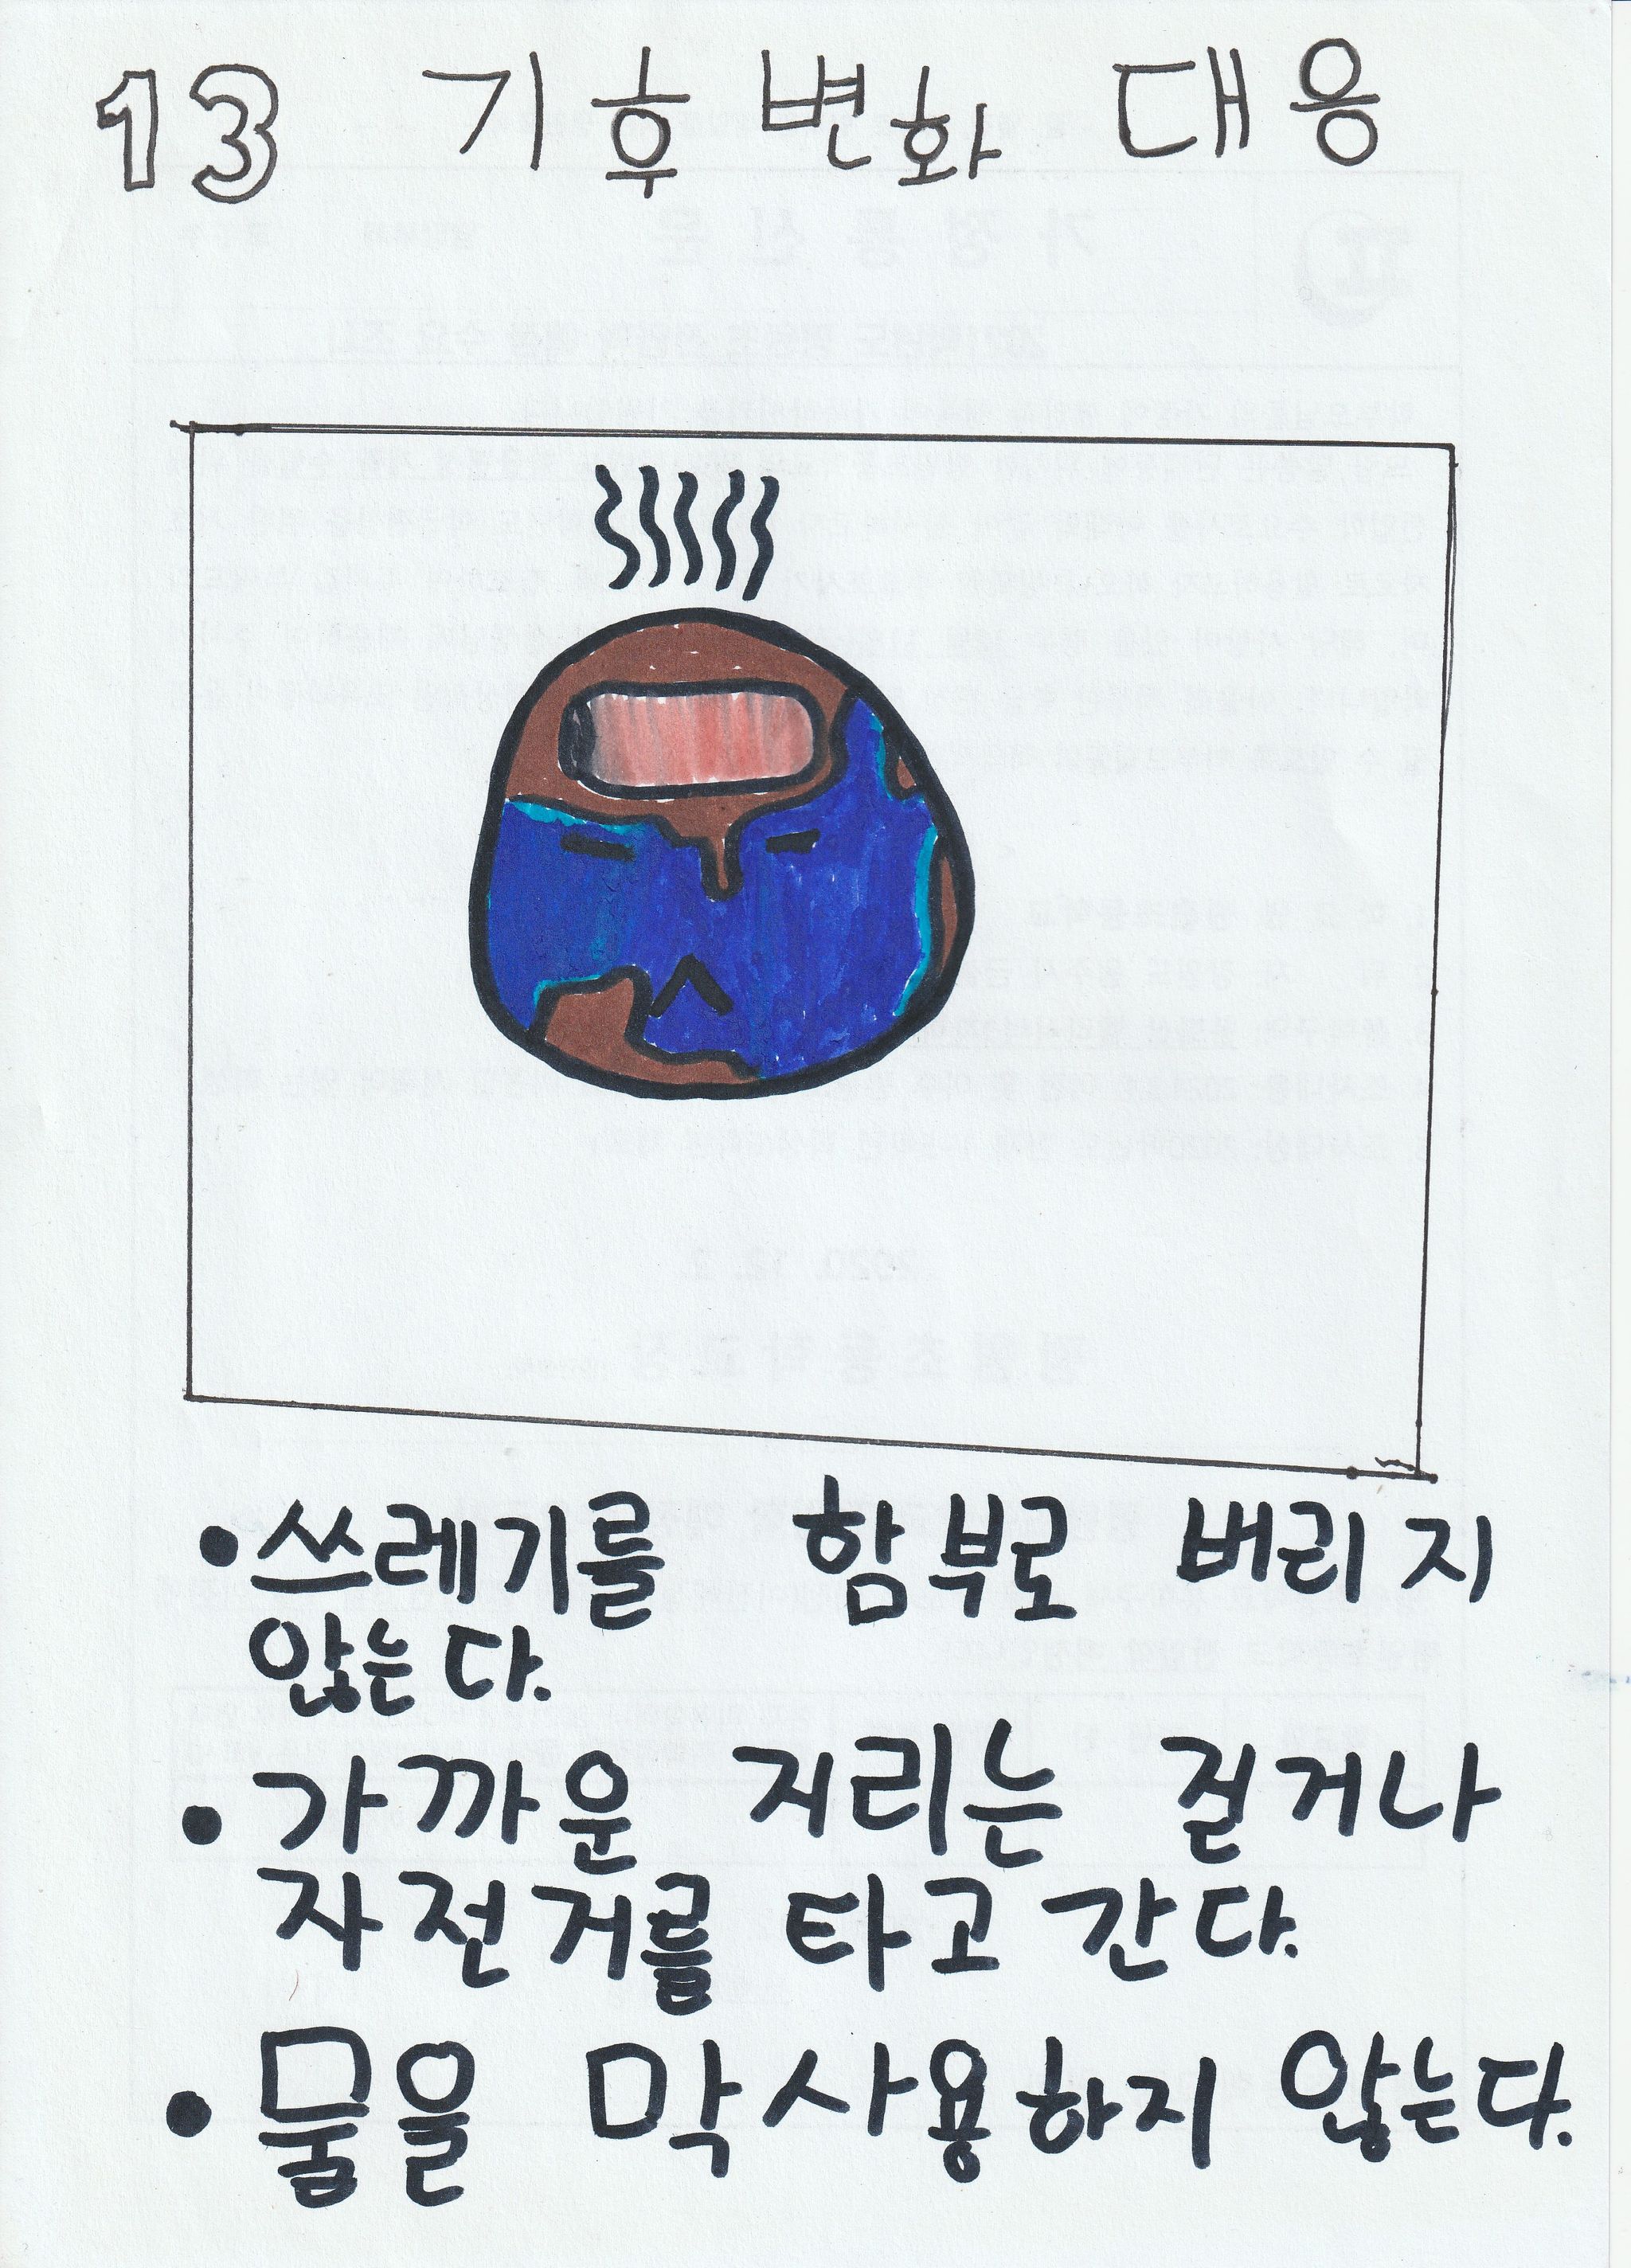 13 기후변화 대응
•쓰레기를 함부로 버리지
않는다.
•가까운 지리는 걷거나
자전거를 타고 간다.
•물을 막사용하지 않는다.